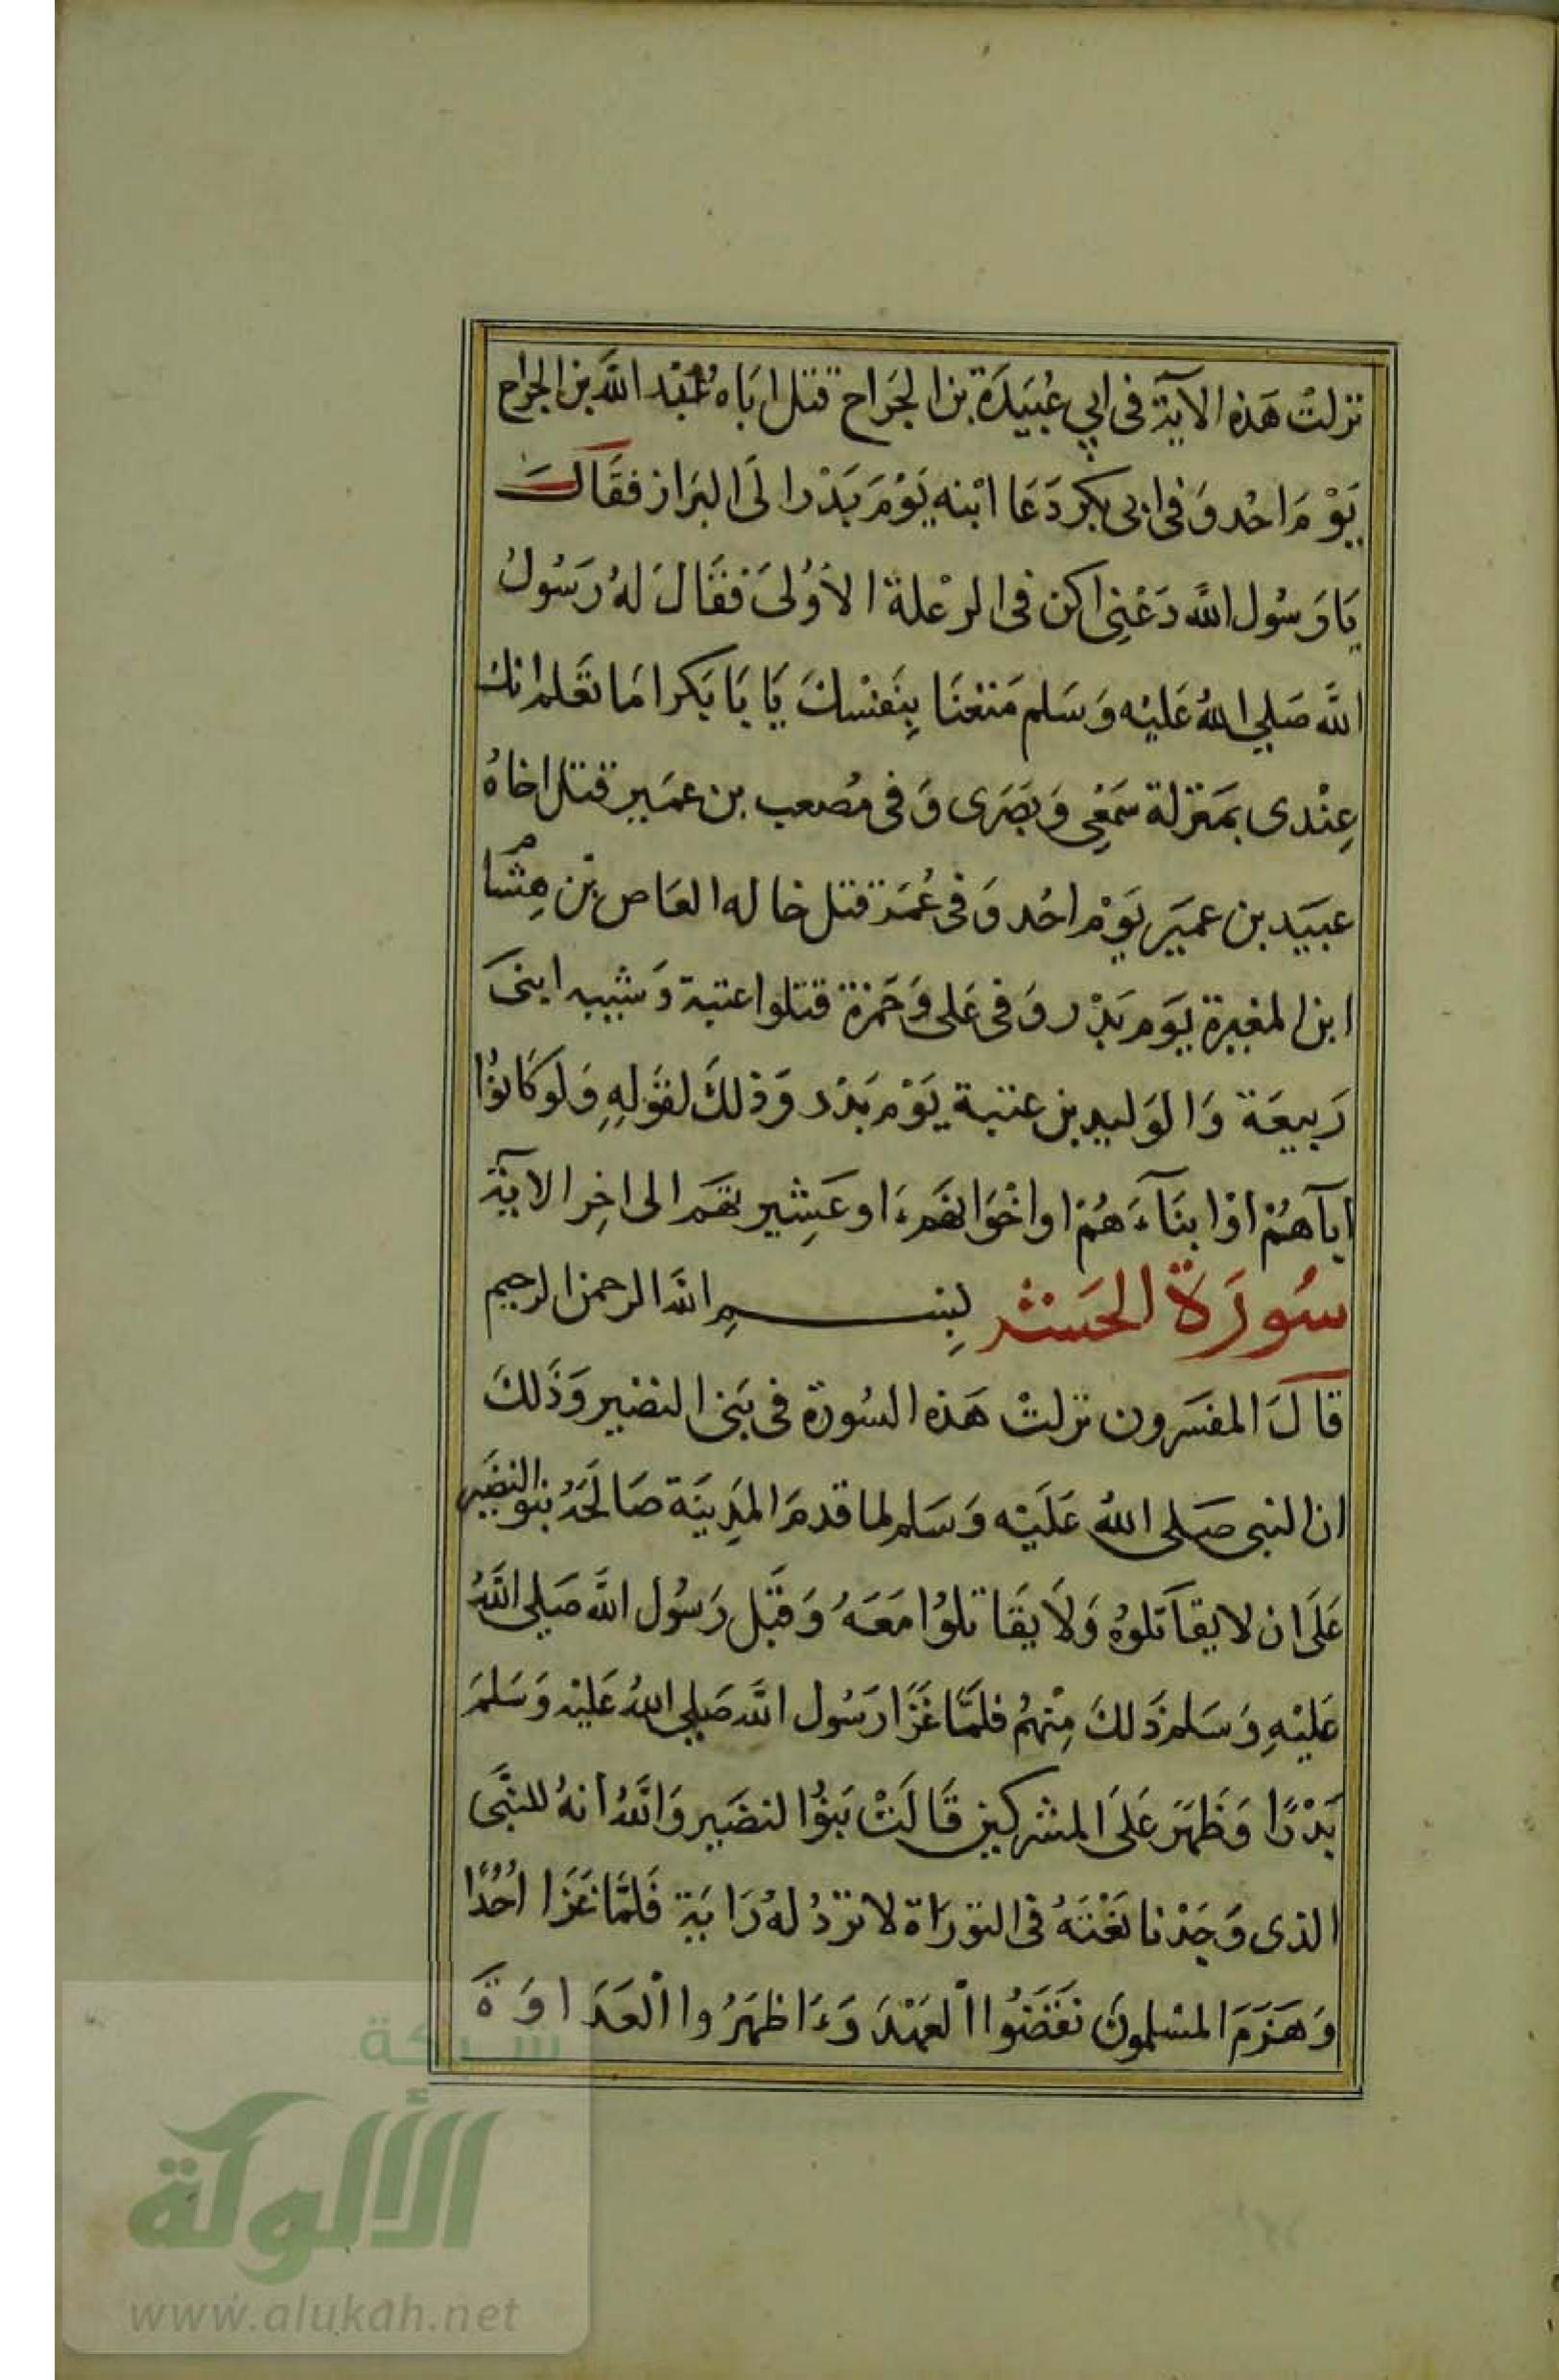 نزلتْ هَذه الآية فى ابي عُبَيَدَة بن الجَراح قتل ابَاه عبْد الله بن الجراح
يَوْمَ احُد وَفى ابى بكر دَعَا ابْنه يَوْمَ بَدْر الَى البَراز فقَالَ
يَا رَسُول الله دَعْنِى اكن فى الرعْلة الأوُلىَ فَقَالَ لهُ رَسُولُ
الله صَلي اللهُ عَليْه وَسَلم مَتعْنَا بِنَفسْكَ يَا بَا بَكر امَا تعَلم انك
عِنْدى بمَنزلة سَمَعِى وَبَصَرى وَفى مُصعب بن عمَير قتل اخاهُ
عبَيَد بن عميَر يَوْم احُد وَفى عُمَر قتل خاله العَاص بْن هِشام
ابن المغيرة يَوَم بَدْر وَفى عَلى وَحَمزة قتلوا عتبة وَشيبه ابنىَ
رَبيعَة وَالوَليد بن عتبة يَوْم بَدْر وَذلكَ لقوَلهِ وَلو كَانوُا
ابآهُمْ اوْ ابنَآءَهُمْ او اخْوَانَهمَ او عَشِيرتهَم الى اخِر الآية
سُورَة الحَشر بِسمِ الله الرحمن الرحيم
قالَ المفسَرون نزلتْ هَذه السُورة فى بَنى النضير وَذَلكَ
ان النبى صَلى اللهُ عَلَيْه وَسَلم لما قدمَ المدِينَة صَالحَهُ بنو النضَير
عَلَى ان لا يقاتَلوُه وَلاَ يقَاتلوُا مَعَهُ وَقبَل رَسُول الله صَلي اللهُ
عَليْهِ وَسَلم ذَلكَ مِنْهمُ فلمَّا غَزَا رَسُول الله صَلي اللهُ عَليْه وَسَلمَ
بَدْرًا وَظَهَرَ عَلىَ المشركين قَالَتْ بَنوُا لنضَير وَاللهُ انهُ للنبَّى
الذى وَجَدْنا نَعْتَهُ فى التورَاة لا ترَدُ لهُ رَايَة فَلمَّا غَزَا اُحُدًا
وَهَزَمَ المسْلمونَ نقَضَوُا الْعَهْدَ وَءَاظهَرُوا الْعَدَاوَةَ
شركة
الألوكة
www.alukah.net